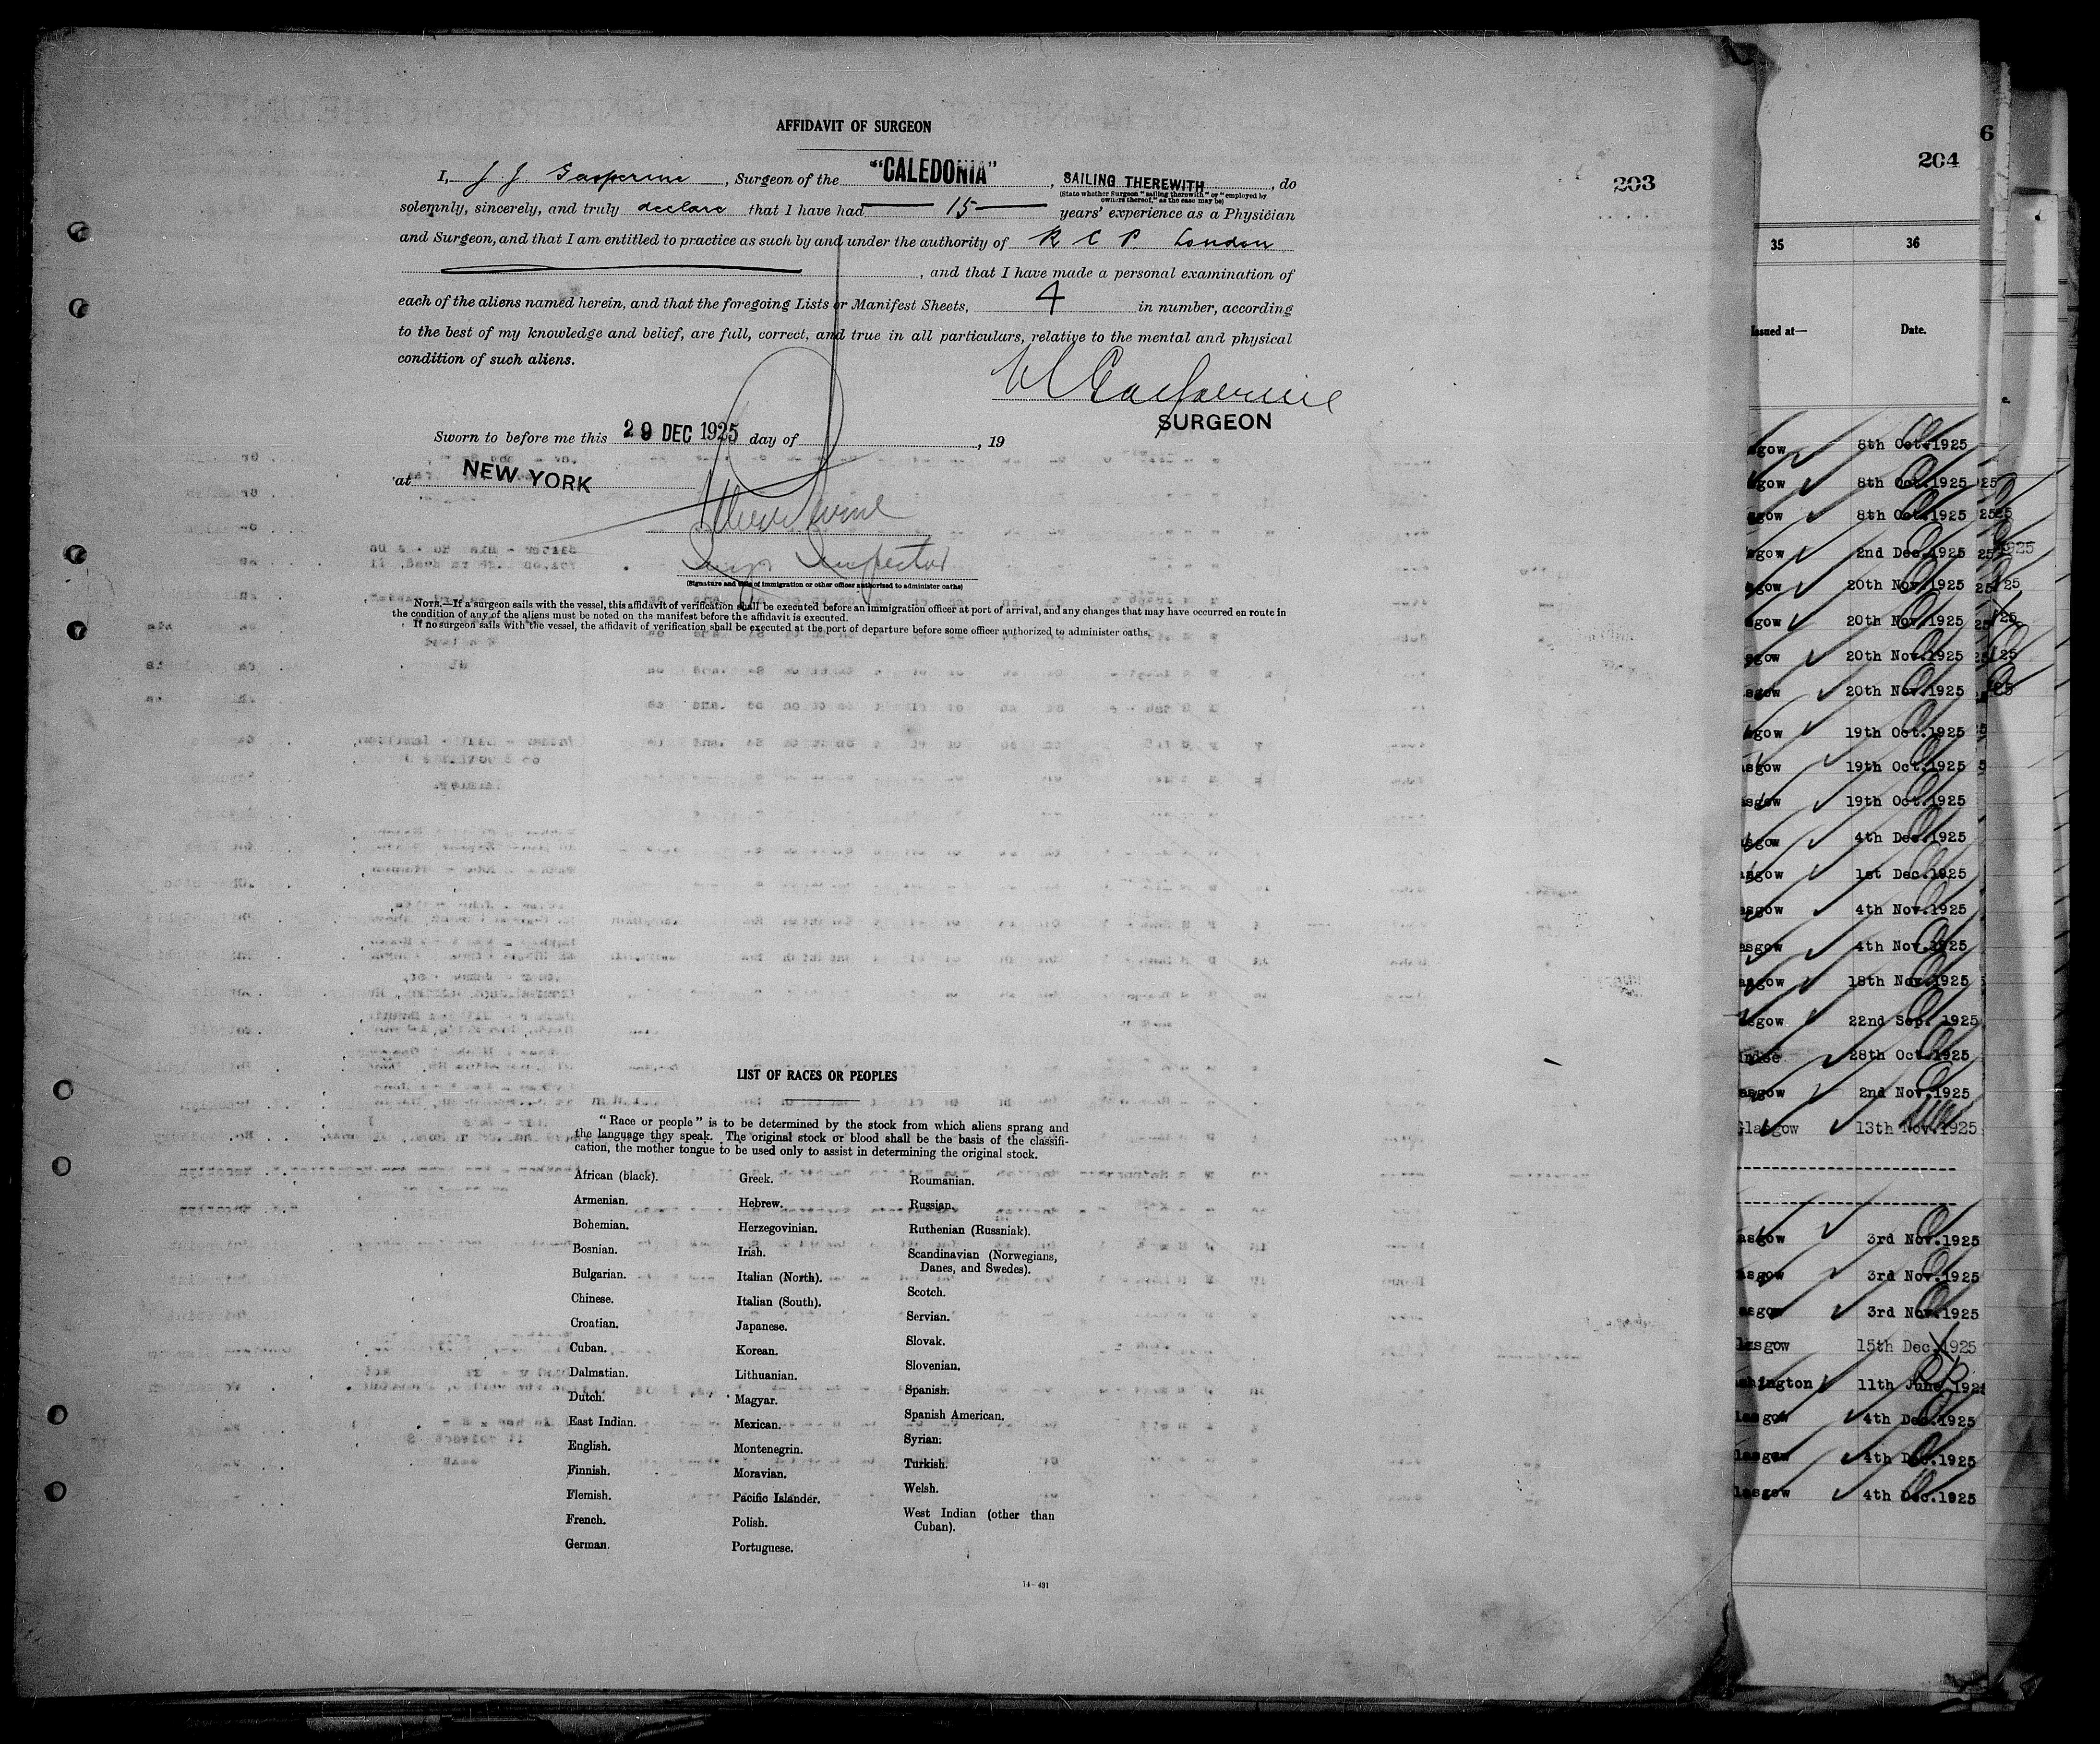 AFFIDAVIT OF SURGEON
I, J. J. Gasperine, Surgeon of the "CALEDONIA", SAILING THEREWITH, do
(State whether Surgeon "sailing therewith" or "employed by
owners thereof," as the case may be)
solemnly, sincerely, and truly declare that I have had 15 years' experience as a Physician
and Surgeon, and that I am entitled to practice as such by and under the authority of R C P. London
, and that I have made a personal examination of
each of the aliens named herein, and that the foregoing Lists or Manifest Sheets, 4 in number, according
to the best of my knowledge and belief, are full, correct, and true in all particulars, relative to the mental and physical
condition of such aliens.
SURGEON
Sworn to before me this 29 DEC 1925 day of , 19
at NEW YORK
Inspector
(Signature and title of immigration or other officer authorized to administer oaths)
NOTE.—If a surgeon sails with the vessel, this affidavit of verification shall be executed before an immigration officer at port of arrival, and any changes that may have occurred en route in
the condition of any of the aliens must be noted on the manifest before the affidavit is executed.
If no surgeon sails with the vessel, the affidavit of verification shall be executed at the port of departure before some officer authorized to administer oaths.
LIST OF RACES OR PEOPLES
"Race or people" is to be determined by the stock from which aliens sprang and
the language they speak. The original stock or blood shall be the basis of the classifi-
cation, the mother tongue to be used only to assist in determining the original stock.
African (black).
Armenian.
Bohemian.
Bosnian.
Bulgarian.
Chinese.
Croatian.
Cuban.
Dalmatian.
Dutch.
East Indian.
English.
Finnish.
Flemish.
French.
German.
Greek.
Hebrew.
Herzegovinian.
Irish.
Italian (North).
Italian (South).
Japanese.
Korean.
Lithuanian.
Magyar.
Mexican.
Montenegrin.
Moravian.
Pacific Islander.
Polish.
Portuguese.
Roumanian.
Russian.
Ruthenian (Russniak).
Scandinavian (Norwegians,
Danes, and Swedes).
Scotch.
Servian.
Slovak.
Slovenian.
Spanish.
Spanish American.
Syrian.
Turkish.
Welsh.
West Indian (other than
Cuban).
14—431
203
204
6
35 36
Issued at— Date.
sgow 8th Oct.1925
sgow 8th Oct.1925
sgow 8th Oct.1925
sgow 2nd Dec.1925
sgow 20th Nov.1925
sgow 20th Nov.1925
sgow 20th Nov.1925
sgow 20th Nov.1925
sgow 19th Oct.1925
asgow 19th Oct.1925
asgow 19th Oct.1925
asgow 4th Dec.1925
asgow 1st Dec.1925
asgow 4th Nov.1925
asgow 4th Nov.1925
asgow 18th Nov.1925
asgow 22nd Sep. 1925
28th Oct.1925
asgow 2nd Nov.1925
Glasgow 13th Nov.1925
asgow 3rd Nov.1925
asgow 3rd Nov.1925
asgow 3rd Nov.1925
lasgow 15th Dec.1925
shington 11th June 192
lasgow 4th Dec.1925
lasgow 4th Dec.1925
lasgow 4th Dec.1925